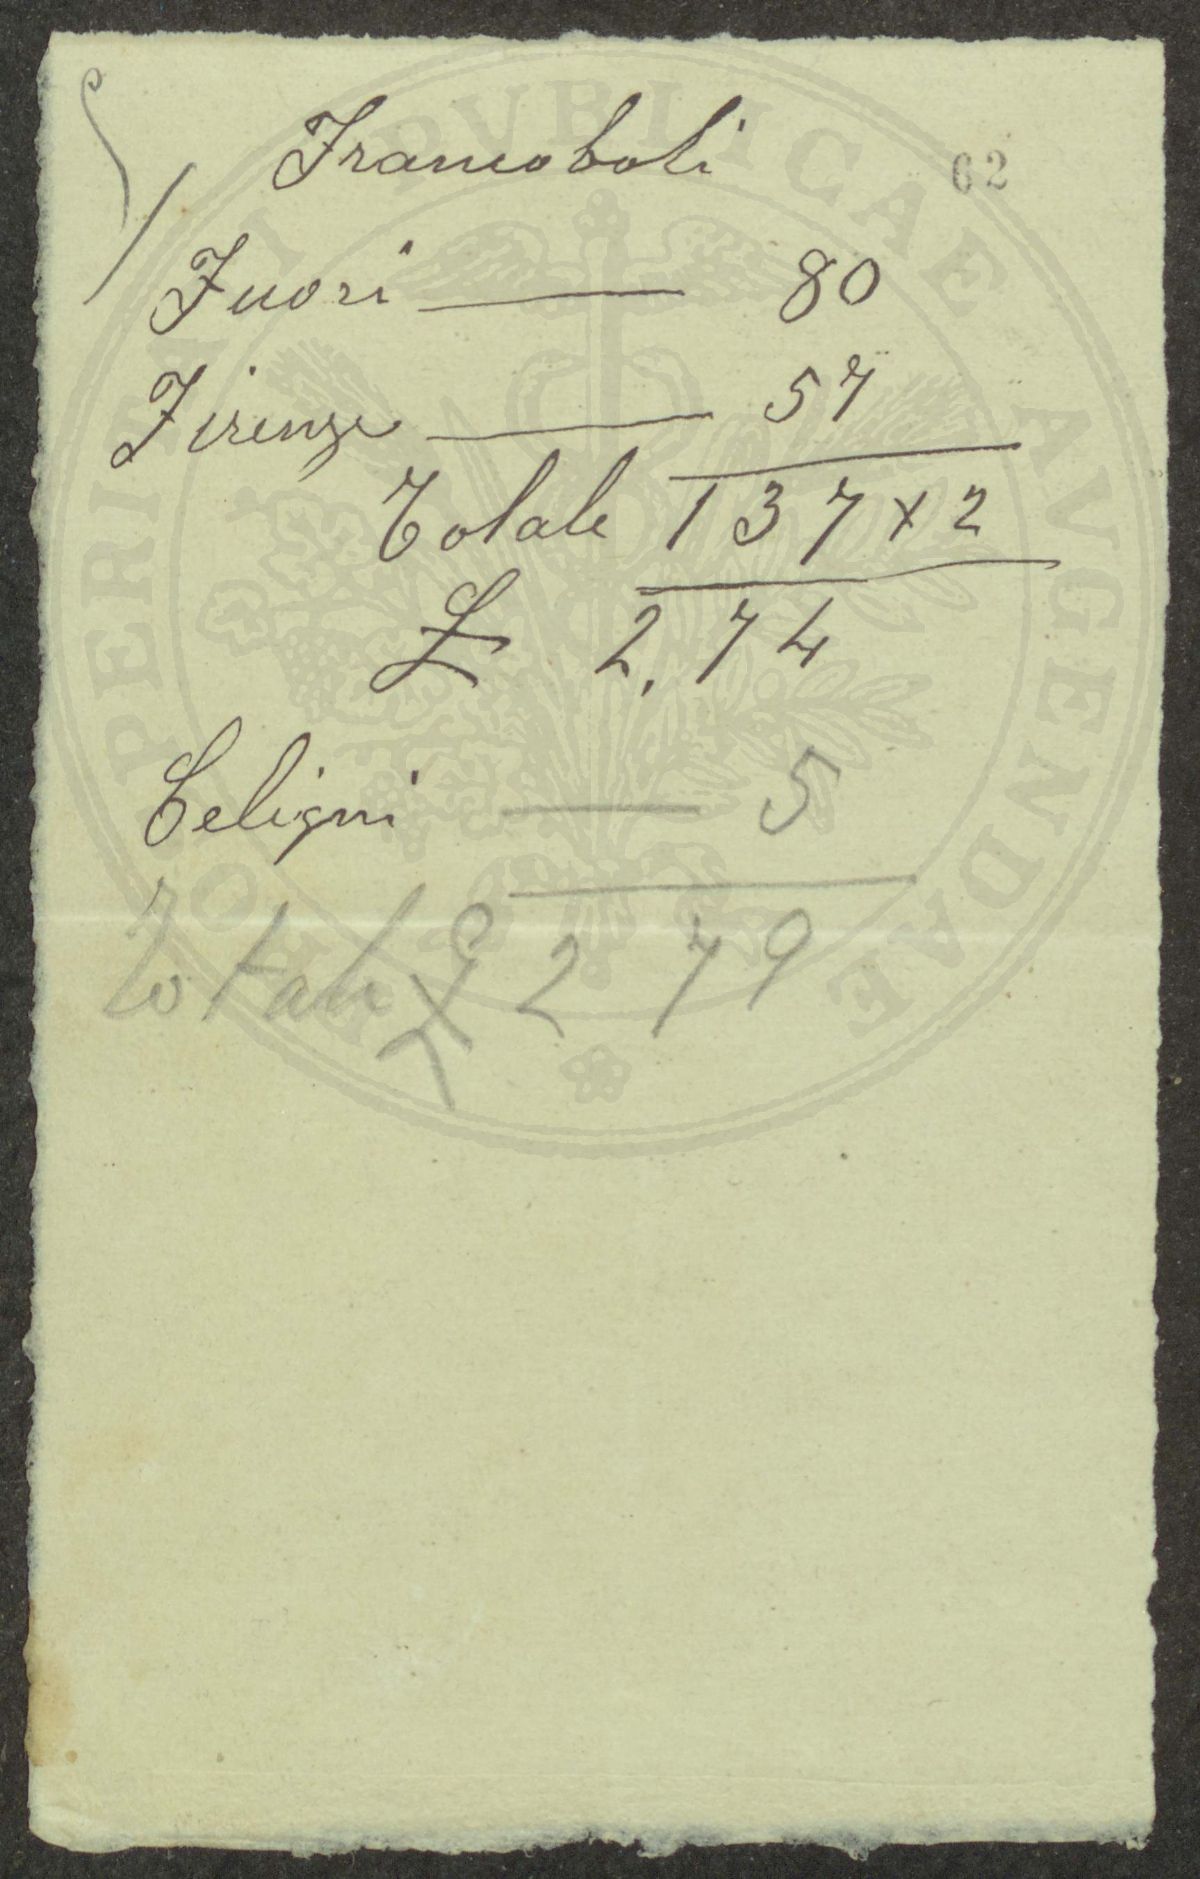 Francoboli
62
Fuori — 80
Firenze — 57
Totale 137 x 2
£ 2,74
Celigni — 5
Totale £ 2 79
HORTI PERITIAE OPERI PVBLICAE AVGENDAE